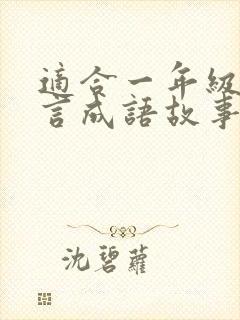 適合一年級
言成語故事
沈碧蘿